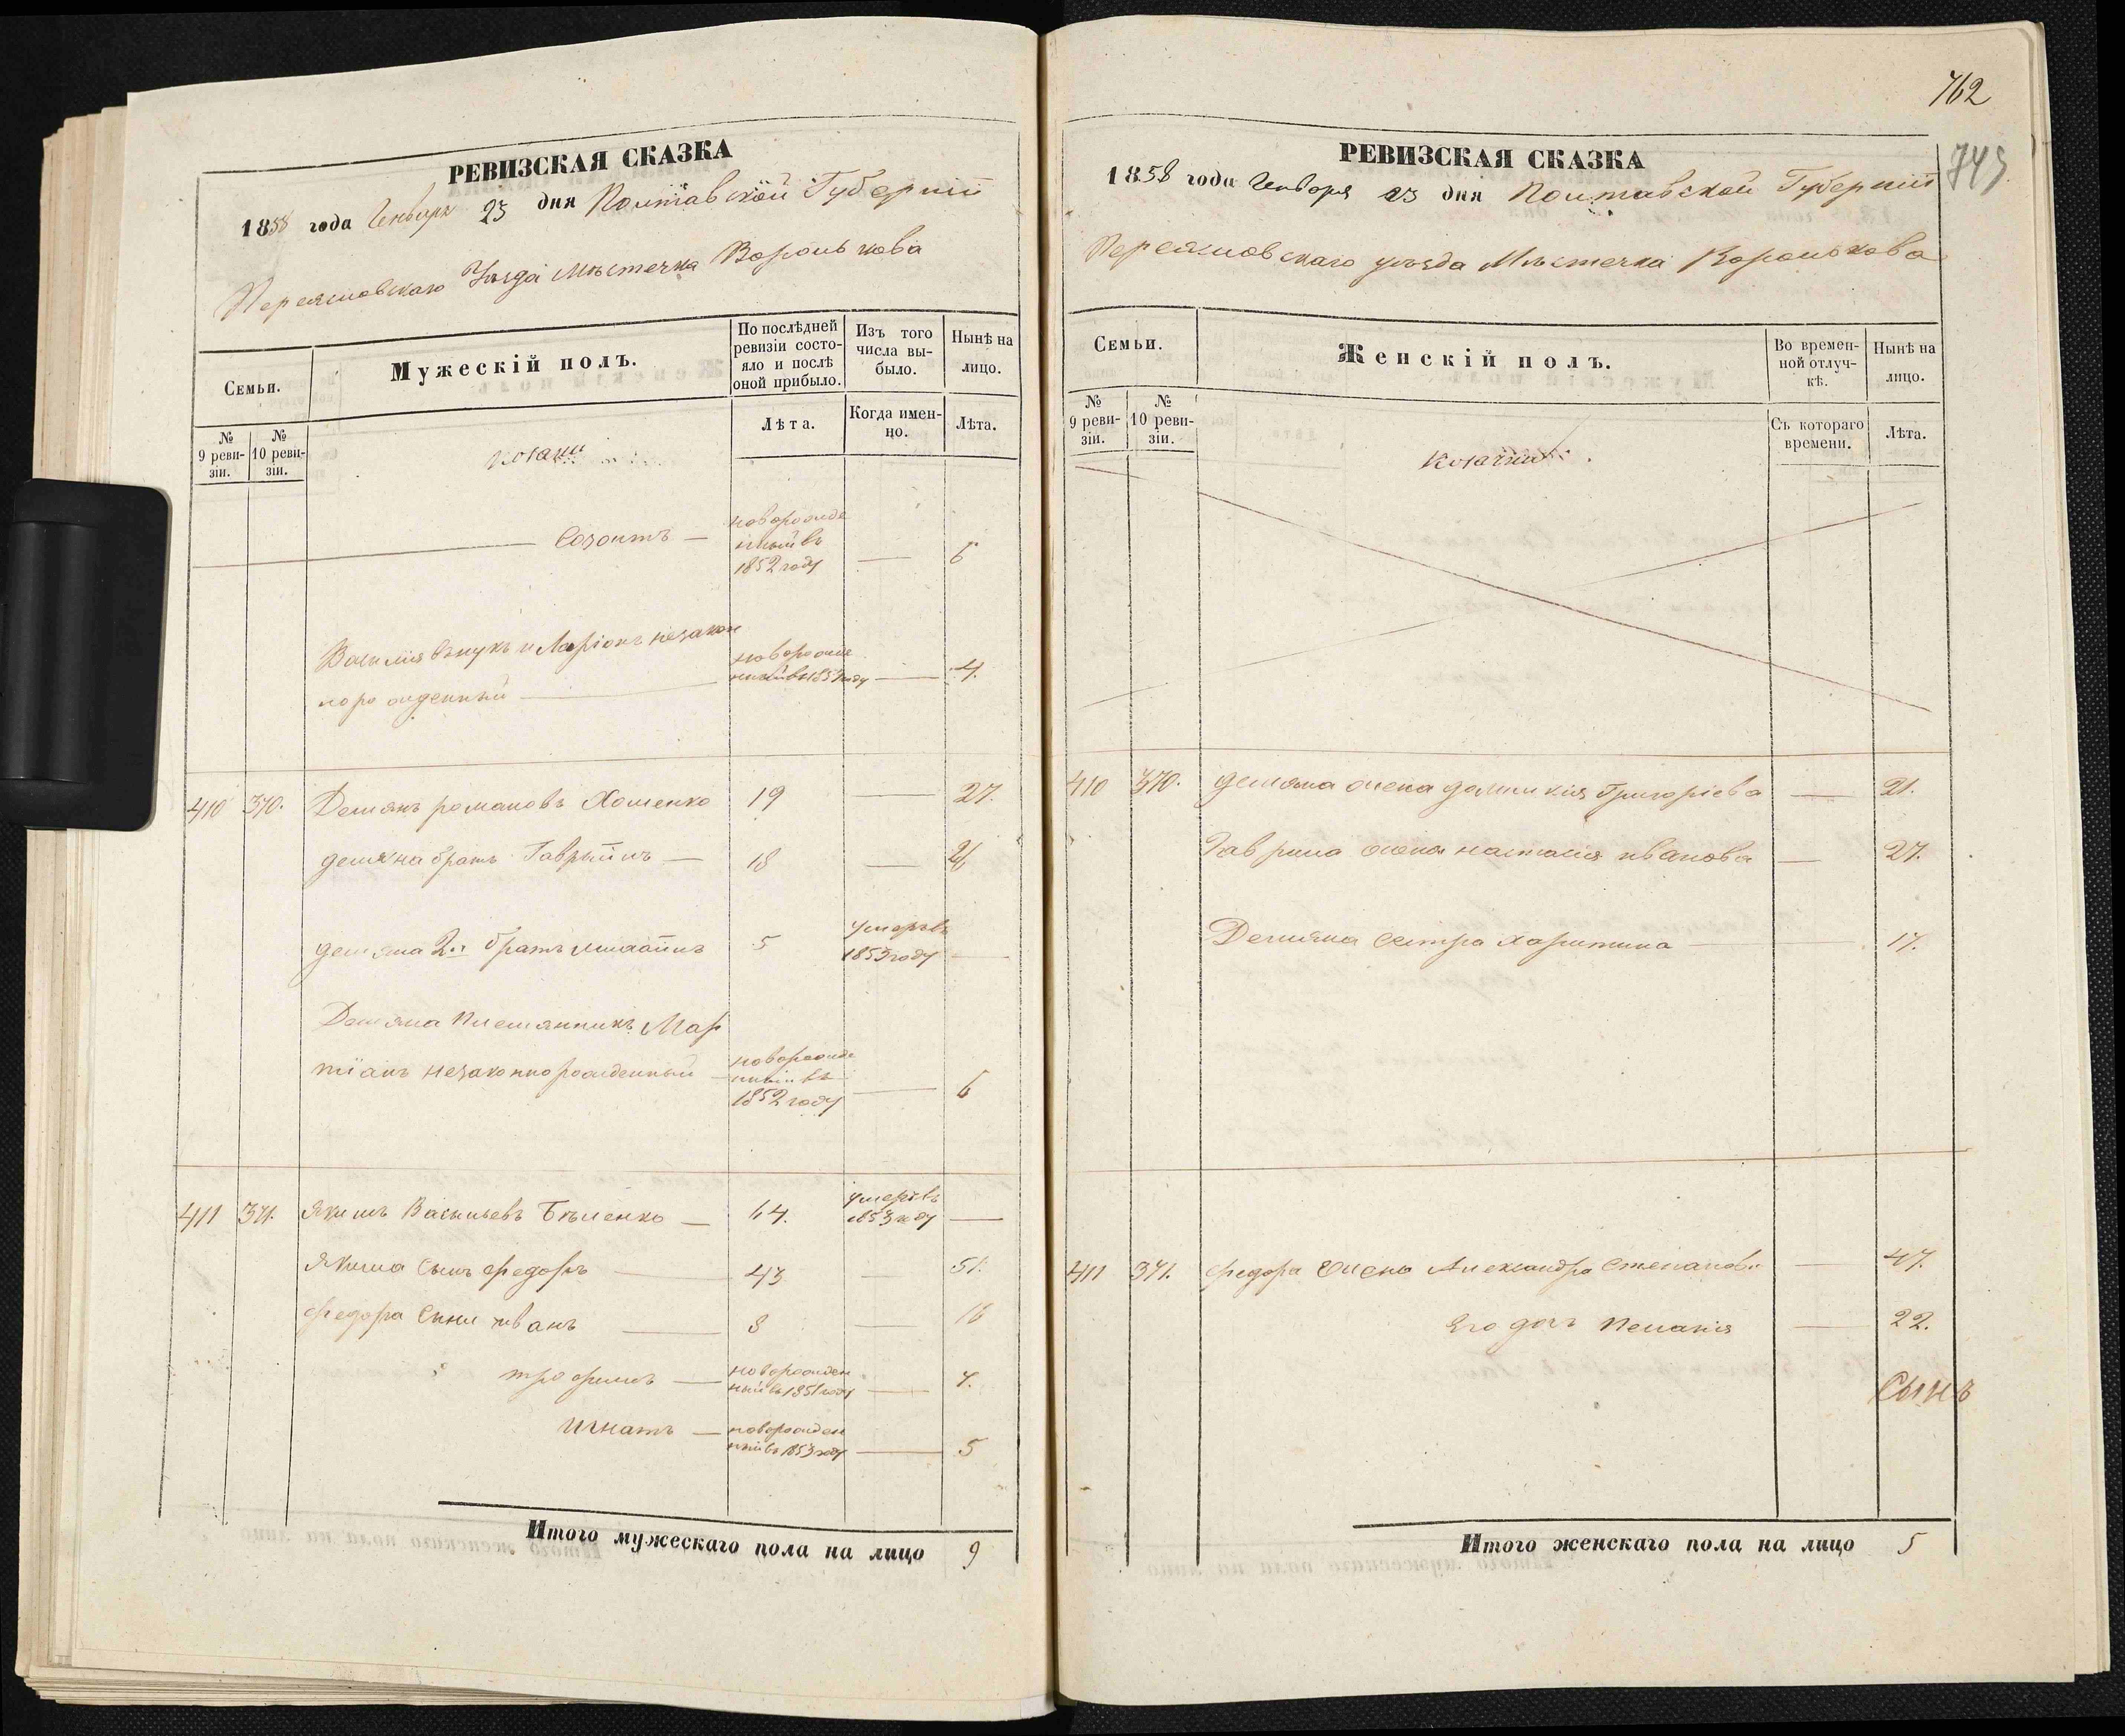 РЕВИЗСКАЯ СКАЗКА
1858 года Генваря 23 дня Полтавской Губерніи
Переяславскаго Уѣзда Мѣстечка Воронькова
Семьи.
Мужескій полъ.
По послѣдней ревизіи состо-
яло и послѣ
оной прибыло.
Изъ того
числа вы-
было.
Нынѣ на
лицо.
№
9 реви-
зіи.
№
10 реви-
зіи.
козаки
Лѣта.
Когда имен-
но.
Лѣта.
Созонтъ — новорожде
нный въ
1852 году — 6
Василія внукъ Ларіонъ незакон
норожденный — новорожде
нный въ 1853 году — 4.
410 370. Демянъ романовъ Хоменко 19 — 27.
демяна братъ Гаврыилъ — 18 — 26
демяна 2й братъ 5 умеръ въ
1853 году —
Демяна племянникъ Мар
тіанъ незаконнорожденный — новорожде
нный въ
1852 году — 6
411 371. Якимъ Васильевъ Бѣленко — 64. умеръ въ
1853 году —
Якима сынъ федоръ — 43 — 51.
федора сыни иванъ — 8 — 16
трофимъ — новорожден
ный въ 1851 году — 7.
Игнатъ — новорожден
ный въ 1853 году — 5
Итого мужескаго пола на лицо 9
762
745
РЕВИЗСКАЯ СКАЗКА
1858 года Генваря 23 дня Полтавской Губерніи
Переяславскаго уѣзда Мѣстечка Воронькова
Семьи.
Женскій полъ.
Во времен-
ной отлуч-
кѣ.
Нынѣ на
лицо.
№
9 реви-
зіи.
№
10 реви-
зіи.
Съ котораго
времени.
Лѣта.
410 370. демяна жена домникія Григорієва — 21.
Гаврила жена настасія иванова — 27.
Демяна сестра Харитина — 17.
411 371. федора жена Александра Степанова — 47.
Его доч Пелагія — 22.
Сынъ
Итого женскаго пола на лицо 5